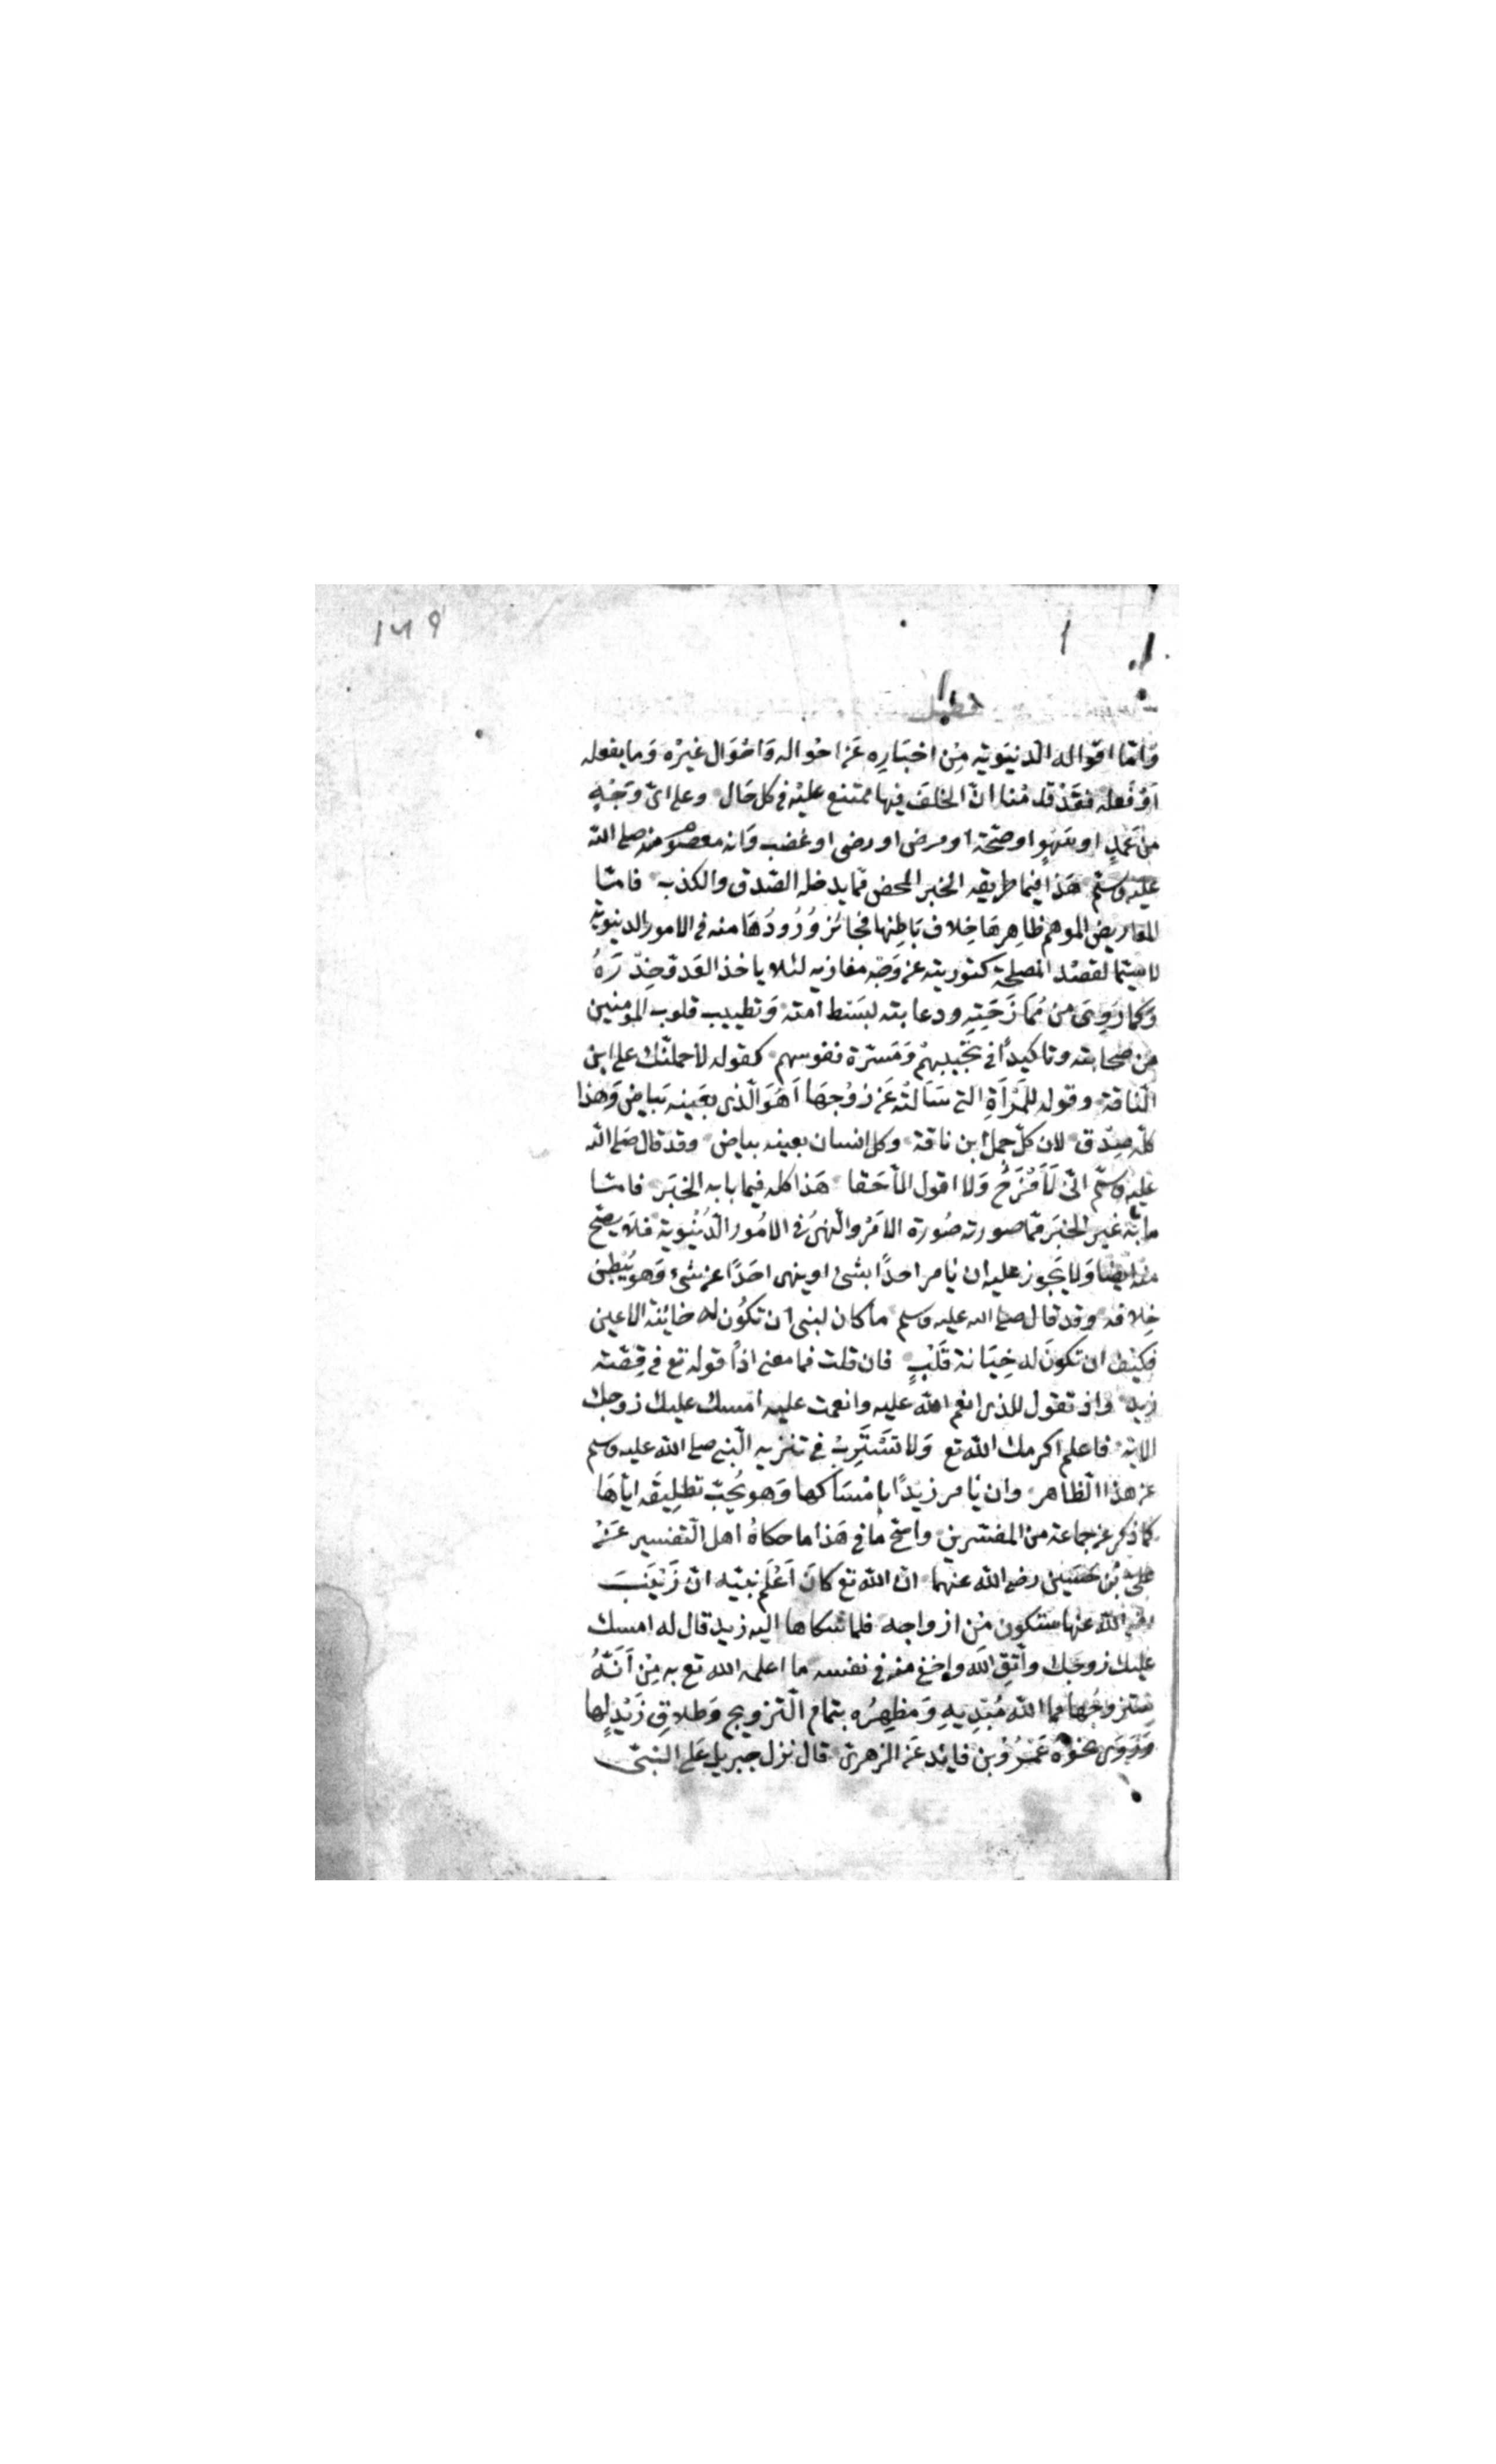 ١٣٩
فصل
وَامّا اقواله الدنيَوية مِن اخبَارِه عَن احْواله وَاحْوَال غيرْه وَما يفعله
اَوْ فَعله فقَدْ قدمْنا انّ الخلف فيها ممتنع عليْه في كل حَال وعلى اىّ وَجْهٍ
من عَمدٍ او سَهْوٍ او صحّة او مرض او رضى او غضب وَانه معصوم منه صلى الله
عليه وسلّم هَذا فيما طريقه الخبر المحض ممّا يدخله الصّدق والكذب فامّا
المعاريض الموهم ظاهِرهَا خِلاف بَاطِنها فجائز وُرُودُهَا منه في الامور الدنيويّة
لاسيّما لقصْد المصلحة كتوريته عن وَجْه مغازيه لئلا ياخذ العَدوّ حِذْرَهُ
وَكما رُوِىَ من مُمَازَحَتِهِ ودعابته لبَسْط امته وَتطييب قلوب المؤمنين
من صحابته وتاكيداً في تحْبيبهْم وَمَسَرّة نفوسهم كقوله لاحملنّك على ابن
النّاقة وقوله للمَرْأَةِ التي سَالَتْه عَن زوْجهَا اَهُوَ الّذى بعَينه بَياض وَهذا
كلّه صِدْق لان كلّ جمل ابن ناقة وكل انسان بعينه بياض وقد قال صَلى الله
عليْه وسَلّم انّى لَأَمْزَحُ وَلا اقول الاّ حَقا هَذا كله فيما بابه الخبَر فامّا
ما بابه غير الخبَر ممّا صورته صُورة الامْر والنّهىُ في الامُور الدُّنْيوية فلا يصحّ
منه ايضا وَلا يَجوز عليه ان يامر احدًا بشئ او ينهى احَدًا عن شئ وَهو يُبْطِنُ
خِلافه وقد قال صلى الله عليه وسلم ما كان لنبى ان تكُون له خائنة الاعين
فكيْف ان تكونَ له خِيَانة قَلْبٍ فان قلت فما معنى اذاً قوله تع في قِصّة
زيد واذ تقول للذى انعم الله عليه وانعمت عليه امسك عليك زوجك
الاية فاعلم اكرمك الله تع وَلا تَسْتَرِبْ في تنزيه النّبى صلى الله عليه وسلم
عن هذا الظاهر وان يَامر زيدًا بامْسَاكها وَهو يُحِبّ تطلِيقَه ايّاهَا
كما ذكر عن جماعة من المفسّرين واصحّ ما في هَذا ما حكاهُ اهل التّفسير عَنْ
عَلى بْن حسَين رضى الله عنهما انّ الله تع كانَ اَعْلَم نبيّه انّ زَيْنَبَ
رضى الله عنها ستكون مِن ازواجه فلما شكاها اليه زيد قال له امسك
عليك زوجَك واتّقِ الله واخفى منه في نفسه ما اعلمه الله تع به مِن اَنّهُ
سَيَتزوجُها مما الله مُبْدِيهِ وَمظهِرُه بتمام التّزويج وَطلاقِ زَيْدٍ لها
وَرَوَى نحوَهُ عَمْرُو بن فايد عَن الزهرىّ قال نزل جبريل عَلى النبىّ